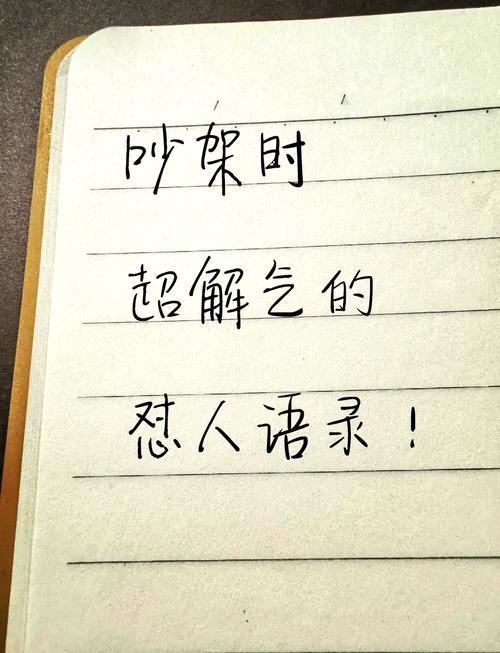 吵架时
超解气的
怼人语录！